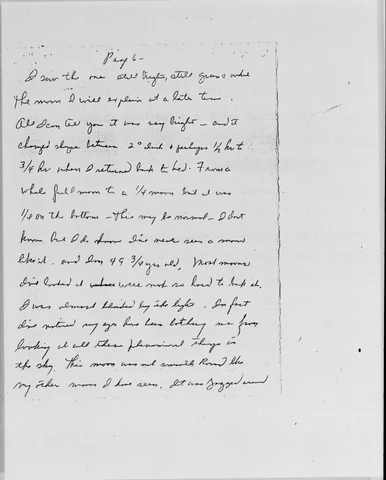 Page 6-
I saw the one still bright, still grass while
the moon I will explain at a later time.
All I can tell you it was very bright - and it
changed shape between 2 o'clock & perhaps 1/2 hr to
3/4 hr when I returned back to bed. From a
whole full moon to a 1/4 moon but it was
1/4 on the bottom - This may be normal - I don't
know but I do know I've never seen a moon
like it. and I'm 49 3/4 yrs old. Most moons
I've looked at were not so hard to look at.
I was almost blinded by the light. In fact
I've noticed my eyes have been bothering me from
looking at all these phenominal things in
the sky. This moon was not smooth Round like
my other moons I have seen. It was Jagged around